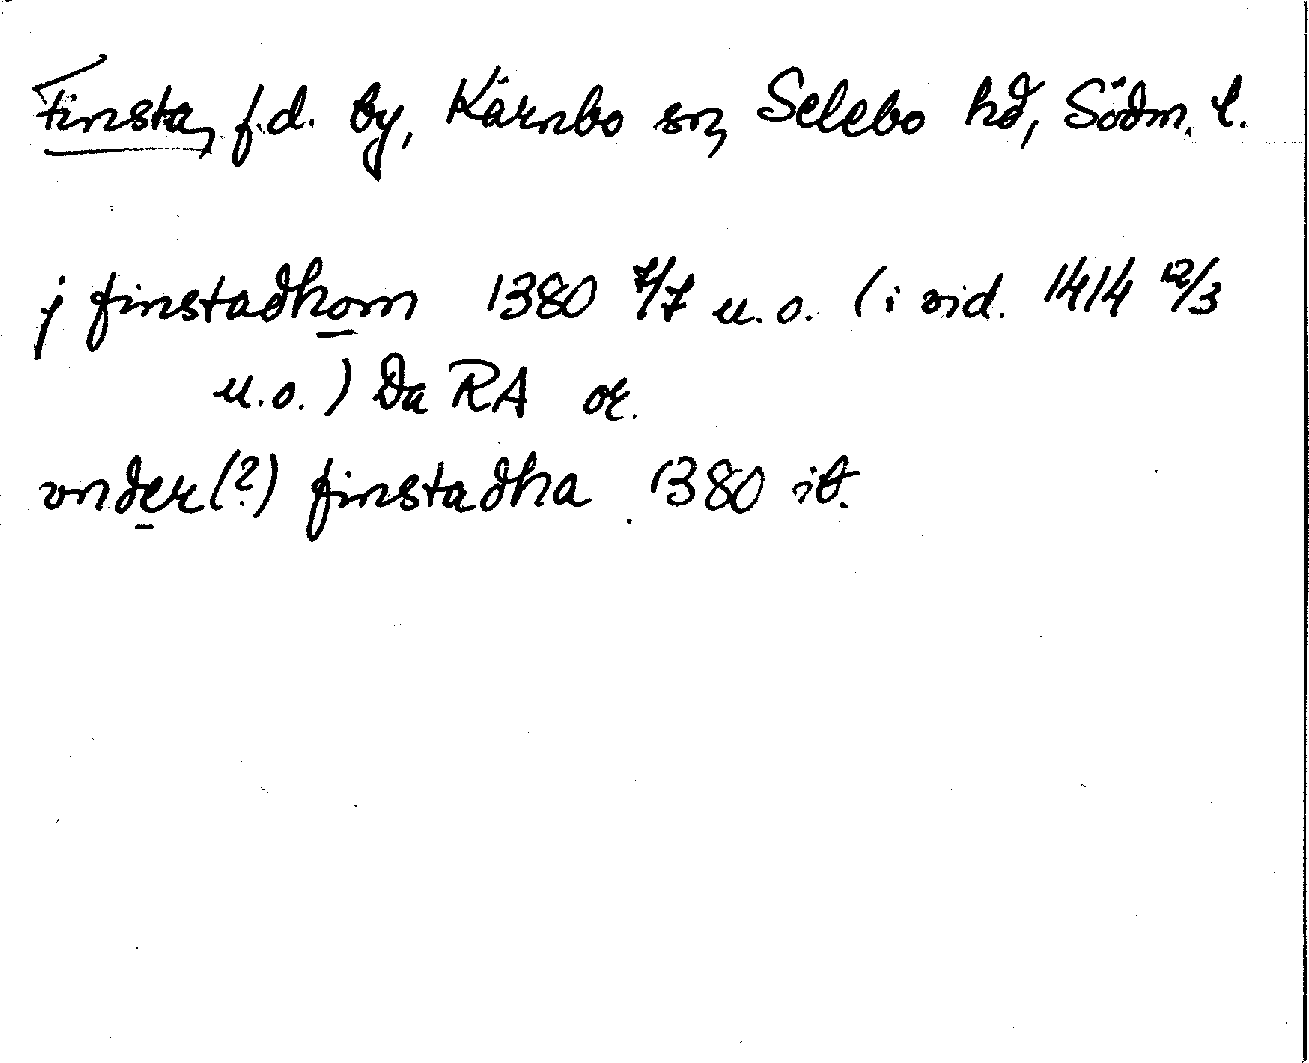 Finsta, f.d. by, Kärnbo sn, Selebo hd, Södm. l.
j finstadhom 1380 7/7 u.o. (i vid. 1414 12/3
u.o.) Da RA or.
vnder(?) finstadha 1380 ib.